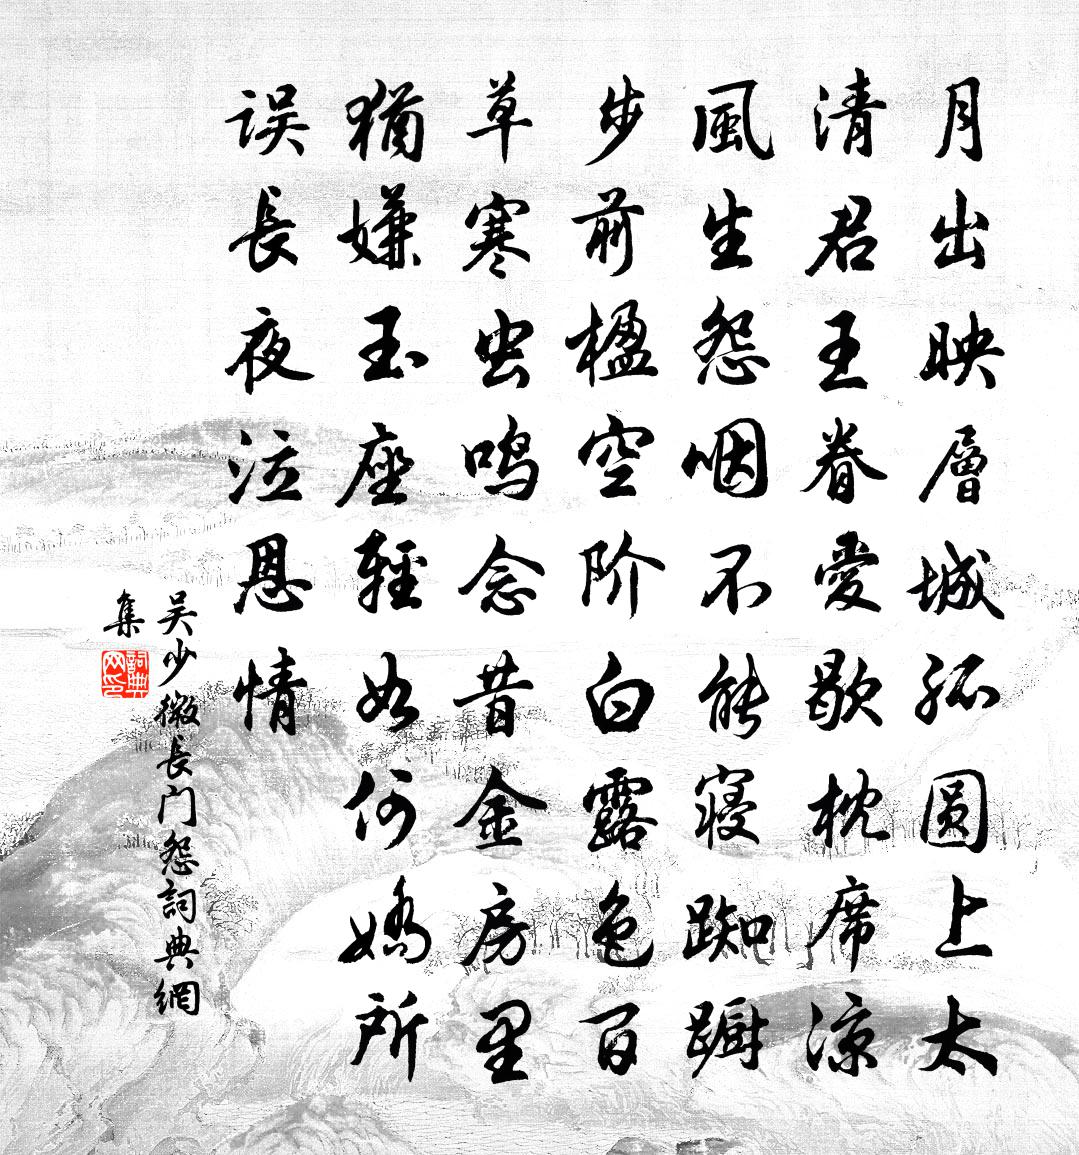 月出映層城孤圆上太
清君王眷愛歇枕席凉
風生怨咽不能寝踟蹰
步前楹空阶白露色百
草寒虫鸣念昔金房里
猶嫌玉座輕如何嬌所
误長夜泣恩情
吴少微長门怨詞典網
集
詞典网印